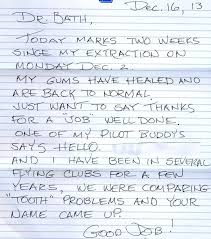 Dec. 16, 13
Dr. Bath,
Today marks two weeks
singe my extraction on
Monday Dec. 2.
My gums have healed and
are back to normal.
Just want to say thanks
for a "job" well done.
One of my pilot buddys
says hello.
And I have been in several
flying clubs for a few
years, we were comparing
"tooth" problems and your
name came up.
Good Job!